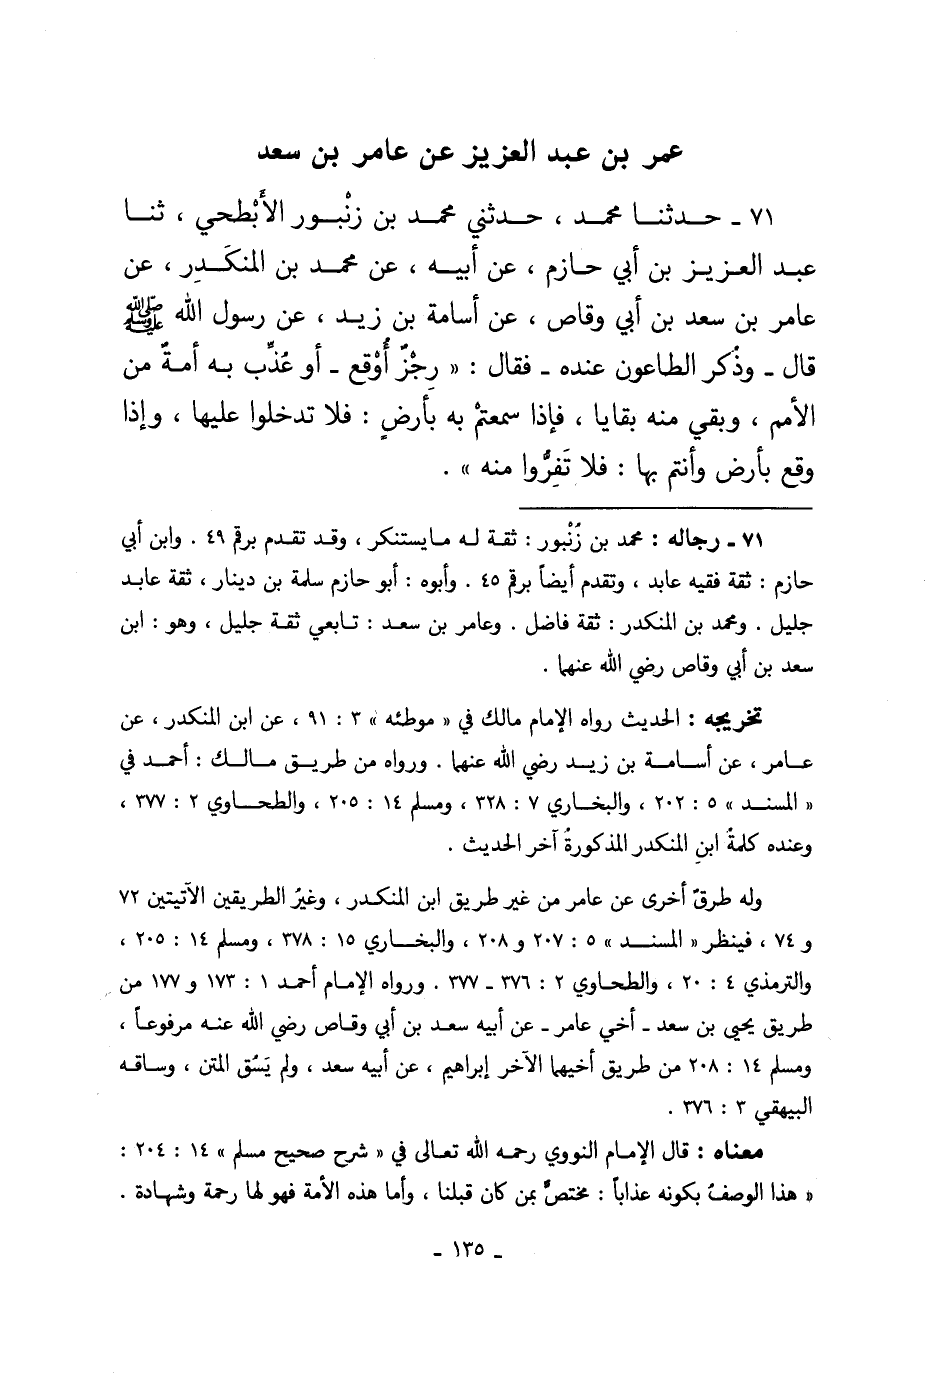 عمر بن عبد العزيز عن عامر بن سعد
٧١ ـ حدثنا محمد ، حدثني محمد بن زنْبور الأَبْطحي ، ثنا
عبد العزيز بن أبي حازم ، عن أبيه ، عن محمد بن المنكَدِر ، عن
عامر بن سعد بن أبي وقاص ، عن أسامة بن زيد ، عن رسول الله ﷺ
قال ـ وذُكر الطاعون عنده ـ فقال : « رِجْزٌ أُوْقع ـ أو عُذِّب به أمةٌ من
الأمم ، وبقي منه بقايا ، فإذا سمعتمْ به بأرضٍ : فلا تدخلوا عليها ، وإذا
وقع بأرض وأنتم بها : فلا تَفِرُّوا منه » .
٧١ ـ رجاله : محمد بن زُنْبور : ثقة له مايستنكر ، وقد تقدم برقم ٤٩ . وابن أبي
حازم : ثقة فقيه عابد ، وتقدم أيضاً برقم ٤٥ . وأبوه : أبو حازم سلمة بن دينار ، ثقة عابد
جليل . ومحمد بن المنكدر : ثقة فاضل . وعامر بن سعد : تابعي ثقة جليل ، وهو : ابن
سعد بن أبي وقاص رضي الله عنهما .
تخريجه : الحديث رواه الإمام مالك في « موطئه » ٣ : ٩١ ، عن ابن المنكدر ، عن
عامر ، عن أسامة بن زيد رضي الله عنهما . ورواه من طريق مالك : أحمد في
« المسند » ٥ : ٢٠٢ ، والبخاري ٧ : ٣٢٨ ، ومسلم ١٤ : ٢٠٥ ، والطحاوي ٢ : ٣٧٧ ،
وعنده كلمةُ ابنِ المنكدر المذكورةُ آخر الحديث .
وله طرقٌ أخرى عن عامر من غير طريق ابن المنكدر ، وغيرُ الطريقين الآتيتين ٧٢
و ٧٤ ، فينظر « المسند » ٥ : ٢٠٧ و ٢٠٨ ، والبخاري ١٥ : ٣٧٨ ، ومسلم ١٤ : ٢٠٥ ،
والترمذي ٤ : ٢٠ ، والطحاوي ٢ : ٣٧٦ ـ ٣٧٧ . ورواه الإمام أحمد ١ : ١٧٣ و ١٧٧ من
طريق يحيى بن سعد ـ أخي عامر ـ عن أبيه سعد بن أبي وقاص رضي الله عنه مرفوعاً ،
ومسلم ١٤ : ٢٠٨ من طريق أخيهما الآخر إبراهيم ، عن أبيه سعد ، ولم يَسُق المتن ، وساقه
البيهقي ٣ : ٣٧٦ .
معناه : قال الإمام النووي رحمه الله تعالى في « شرح صحيح مسلم » ١٤ : ٢٠٤ :
« هذا الوصفُ بكونه عذاباً : مختصٌّ بمن كان قبلنا ، وأما هذه الأمة فهو لها رحمة وشهادة .
ـ ١٣٥ ـ